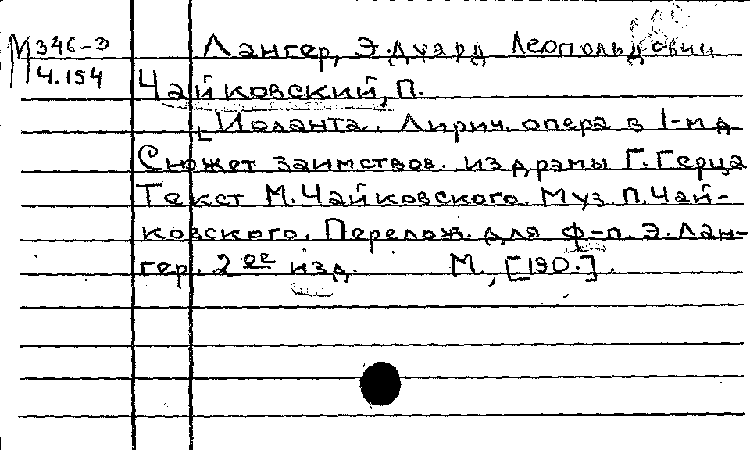 М 346-Э Лангер, Эдуард Леопольдович
4.154
Чайковский, П.
Иоланта. Лирич. опера в 1-м д
Сюжет заимствов. из драмы Г. Герца
Текст М. Чайковского. Муз П. Чай-
ковского. Перелож. для ф-п. Э. Лан-
гер. 2ое изд. М., [190.].